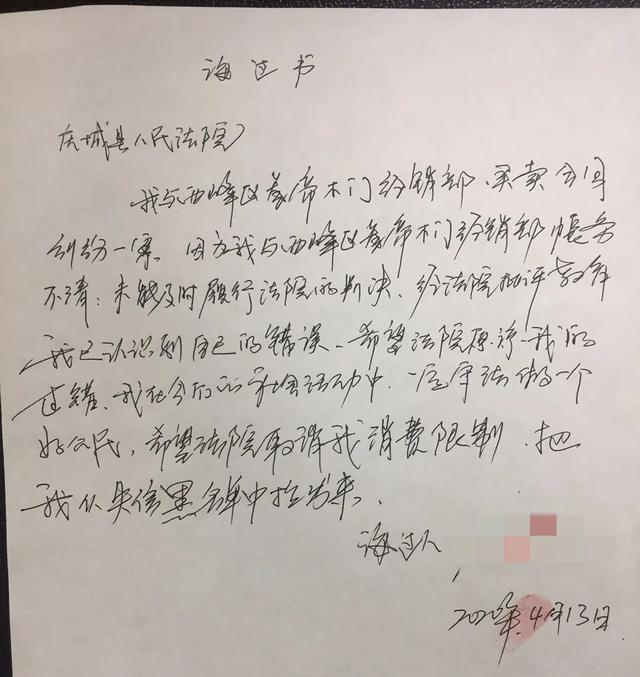 悔过书
庆城县人民法院
我与西峰区美帝木门经销部买卖合同
纠纷一案。因为我与西峰区美帝木门经销部帐务
不清：未能及时履行法院的判决、经法院批评教育
我已认识到自己的错误、希望法院原谅我的
过错、我在今后的社会活动中、一定守法做一个
好公民，希望法院取消我消费限制、把
我从失信黑名单中拉出来。
悔过人
2020年4月13日